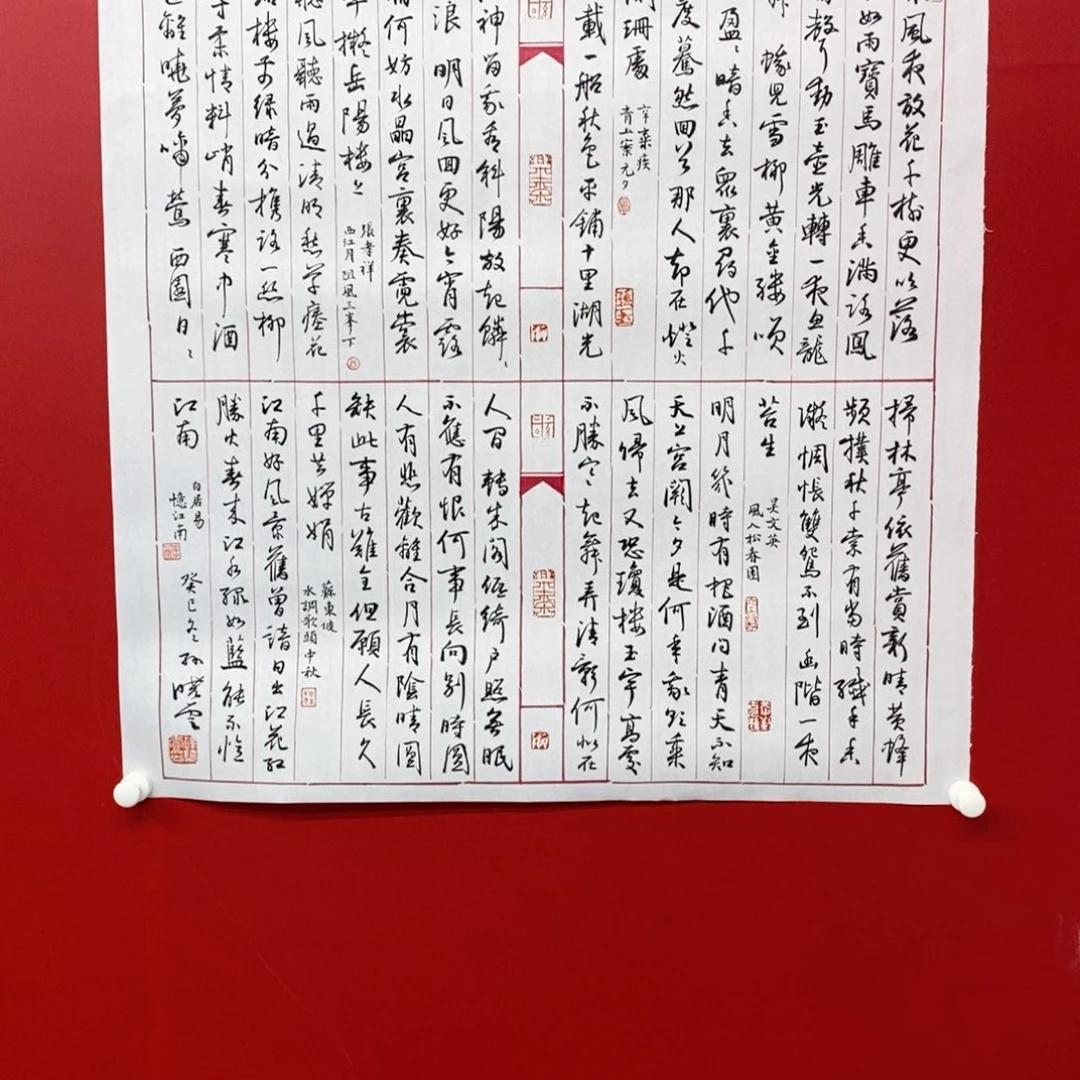 風夜放花千樹更吹落
如雨寶馬雕車香滿路鳳
聲動玉壺光轉一夜魚龍
蛾兒雪柳黃金縷笑
盈〻暗香去衆裏尋他千
度驀然回首那人却在燈火
珊處
辛棄疾
青玉案元夕
載一船秋色平鋪十里湖光
神留我看斜陽放起鱗〻
浪明日風回更好今宵露
宿何妨水晶宮裏奏霓裳
準擬岳陽樓上
張孝祥
西江月阻風三峯下
聽風聽雨過清明愁草瘞花
樓前綠暗分攜路一絲柳
寸柔情料峭春寒中酒
離曉夢啼鶯西園日〻
掃林亭依舊賞新晴黃蜂
頻撲秋千索有當時纖手香
凝惆悵雙鴛不到幽階一夜
苔生
吳文英
風入松春園
明月幾時有把酒问青天不知
天上宮闕今夕是何年我欲乘
風歸去又恐瓊樓玉宇高處
不勝寒起舞弄清影何似在
人間轉朱閣低綺戶照無眠
不應有恨何事長向別時圓
人有悲歡離合月有陰晴圓
缺此事古難全但願人長久
千里共嬋娟
蘇東坡
水調歌頭中秋
江南好風景舊曾諳日出江花紅
勝火春來江水綠如藍能不憶
江南
白居易
憶江南
癸巳冬孫曉雲